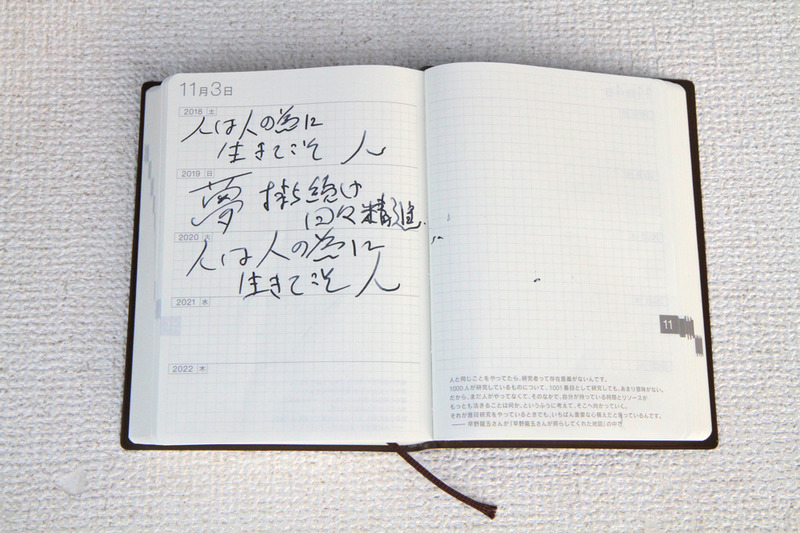 11月3日
2018 土
人は人の為に
生きてこそ 人
2019 日
夢 持ち続け
日々精進
2020 火
人は人の為に
生きてこそ 人
2021 水
2022 木
11
人と同じことをやってたら、研究者って存在意義がないんです。
1000人が研究しているものについて、1001番目として研究しても、あまり意味がない。
だから、まだ人がやってなくて、そのなかで、自分が持っている時間とリソースが
もっとも活きることは何か、というふうに考えて、そこへ向かっていく。
それが僕日研究をやっているときでも、いちばん重要な心構えだと思っているんです。
—— 早野龍五さんが『早野龍五さんが照らしてくれた地図』の中で